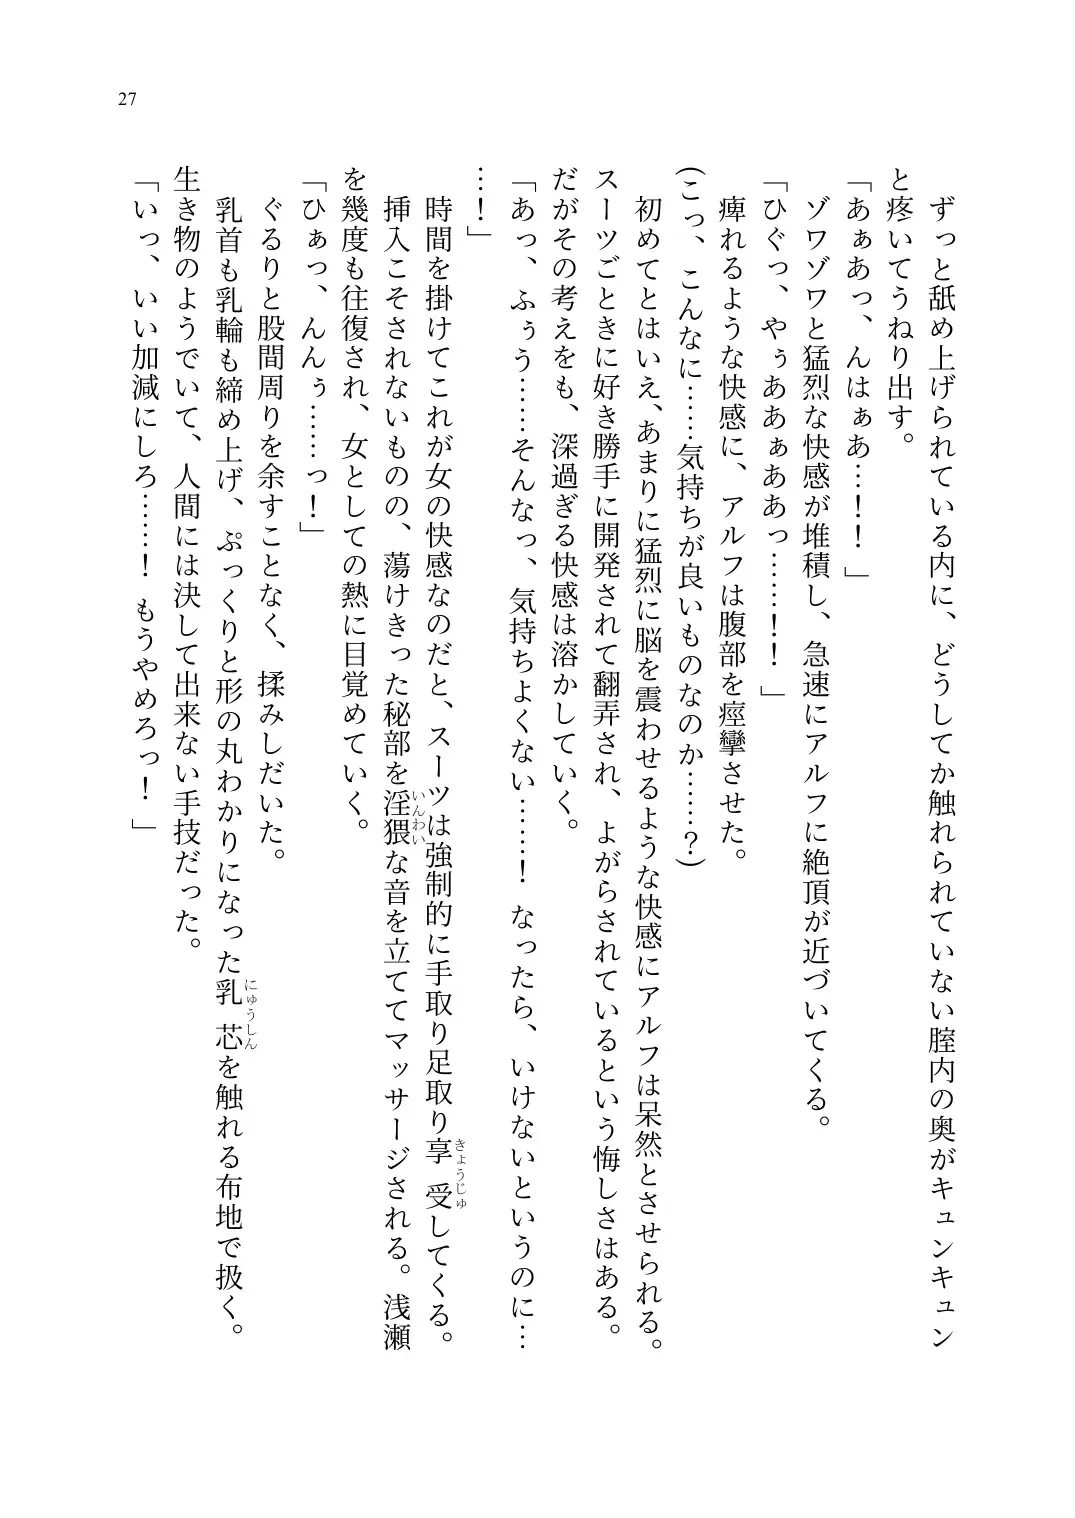 27
ずっと舐め上げられている内に、どうしてか触れられていない膣内の奥がキュンキュン
と疼いてうねり出す。
「あぁあっ、んはぁあ…！！」
ゾワゾワと猛烈な快感が堆積し、急速にアルフに絶頂が近づいてくる。
「ひぐっ、やぅああぁああっ……！！」
痺れるような快感に、アルフは腹部を痙攣させた。
(こっ、こんなに……気持ちが良いものなのか……？)
初めてとはいえ、あまりに猛烈に脳を震わせるような快感にアルフは呆然とさせられる。
スーツごときに好き勝手に開発されて翻弄され、よがらされているという悔しさはある。
だがその考えをも、深過ぎる快感は溶かしていく。
「あっ、ふぅう……そんなっ、気持ちよくない……！　なったら、いけないというのに…
…！」
時間を掛けてこれが女の快感なのだと、スーツは強制的に手取り足取り享受してくる。
きょうじゅ
挿入こそされないものの、蕩けきった秘部を淫猥な音を立ててマッサージされる。浅瀬
いんわい
を幾度も往復され、女としての熱に目覚めていく。
「ひぁっ、んんぅ……っ！」
ぐるりと股間周りを余すことなく、揉みしだいた。
乳首も乳輪も締め上げ、ぷっくりと形の丸わかりになった乳芯を触れる布地で扱く。
にゅうしん
生き物のようでいて、人間には決して出来ない手技だった。
「いっ、いい加減にしろ……！　もうやめろっ！」